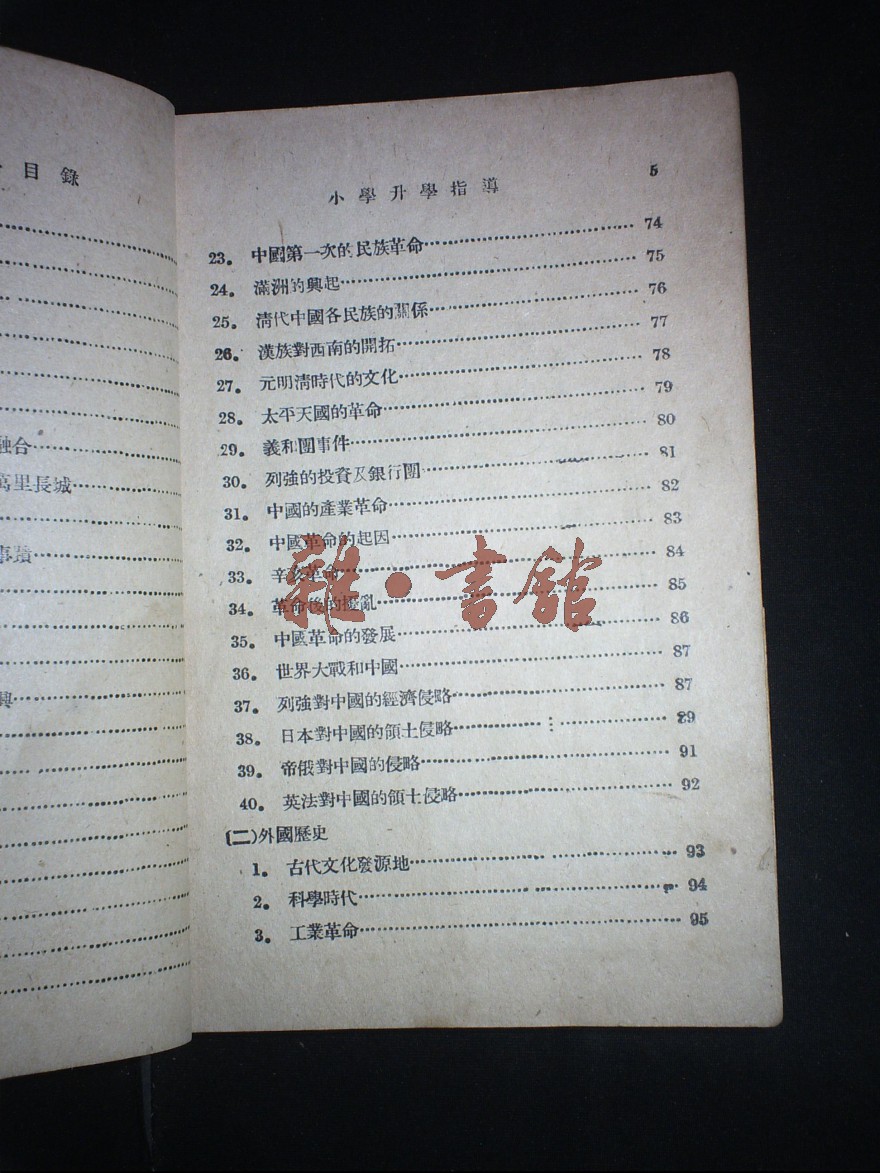 目錄
融合
萬里長城
事蹟
興
小學升學指導 5
23. 中國第一次的民族革命 74
24. 滿洲的興起 75
25. 清代中國各民族的關係 76
26. 漢族對西南的開拓 77
27. 元明清時代的文化 78
28. 太平天國的革命 79
29. 義和團事件 80
30. 列強的投資及銀行團 81
31. 中國的產業革命 82
32. 中國革命的起因 83
33. 辛亥革命 84
34. 革命後的擾亂 85
35. 中國革命的發展 86
36. 世界大戰和中國 87
37. 列強對中國的經濟侵略 87
38. 日本對中國的領土侵略 89
39. 帝俄對中國的侵略 91
40. 英法對中國的領土侵略 92
(二)外國歷史
1. 古代文化發源地 93
2. 科學時代 94
3. 工業革命 95
雜·書館